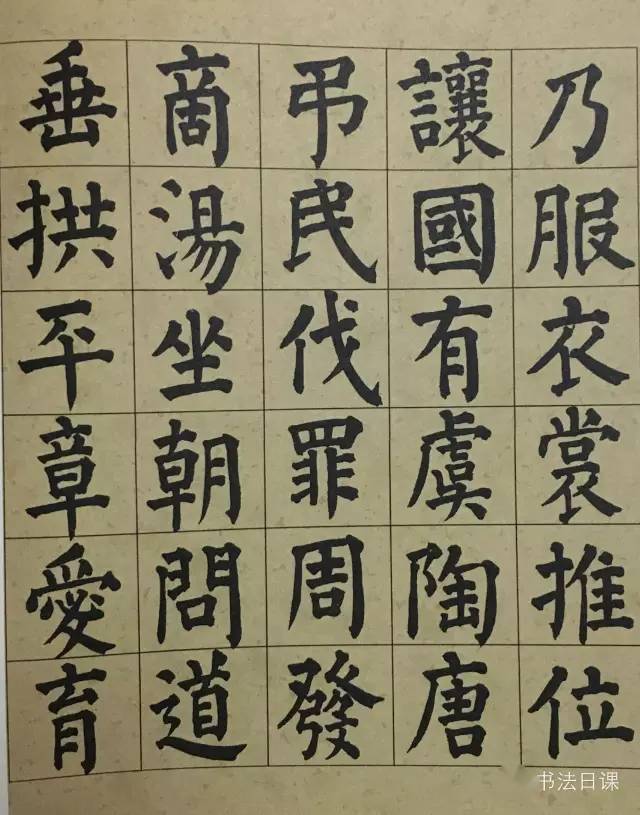 乃服衣裳推位
讓國有虞陶唐
弔民伐罪周發
商湯坐朝問道
垂拱平章愛育
书法日课